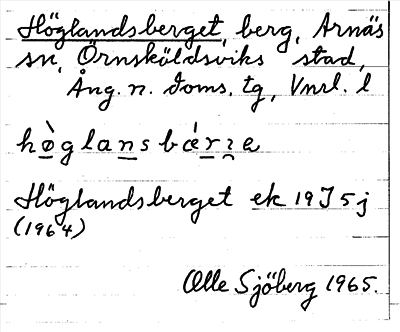 Höglandsberget, berg, Arnäs
sn, Örnsköldsviks stad,
Ång. n. doms. tg, Vnrl. l
hø̀glansbǽrɿe
Höglandsberget ek 19J5j
(1964)
Olle Sjöberg 1965.